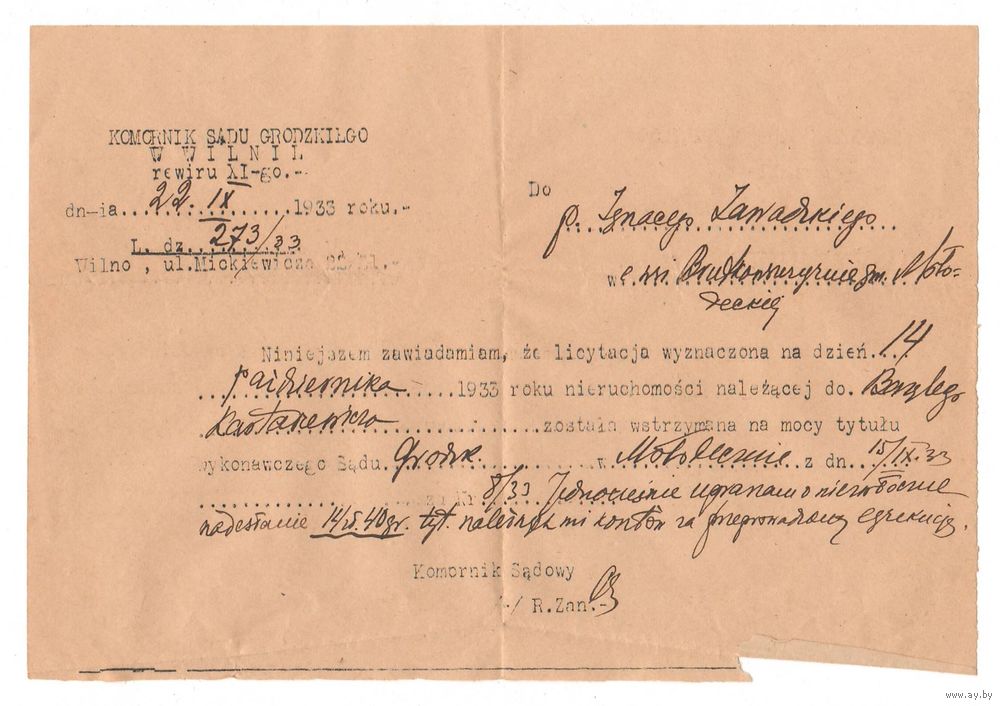 KOMORNIK SĄDU GRODZKIEGO
W WILNIE
rewiru XI-go.-
dn-ia 22. IX 1933 roku.-
L. dz. 273/33
Wilno, ul. Mickiewicza 22/21.-
Do
p. Ignacego Zawadzkiego
w e wsi gm. Moło-
deckiej
Niniejszem zawiadamiam, że licytacja wyznaczona na dzień 14
października 1933 roku nieruchomości należącej do Bazylego
została wstrzymana na mocy tytułu
wykonawczego Sądu Grodzk. w Mołodecznie z dn 15/IX.33
za Nr 8/33 Jednocześnie upraszam o niezwłoczne
nadesłanie 14 zł. 40 gr. tyt. należnych mi kosztów za przeprowadzoną egzekucję.
Komornik Sądowy
/-/ R.Zan.-
www.ay.by